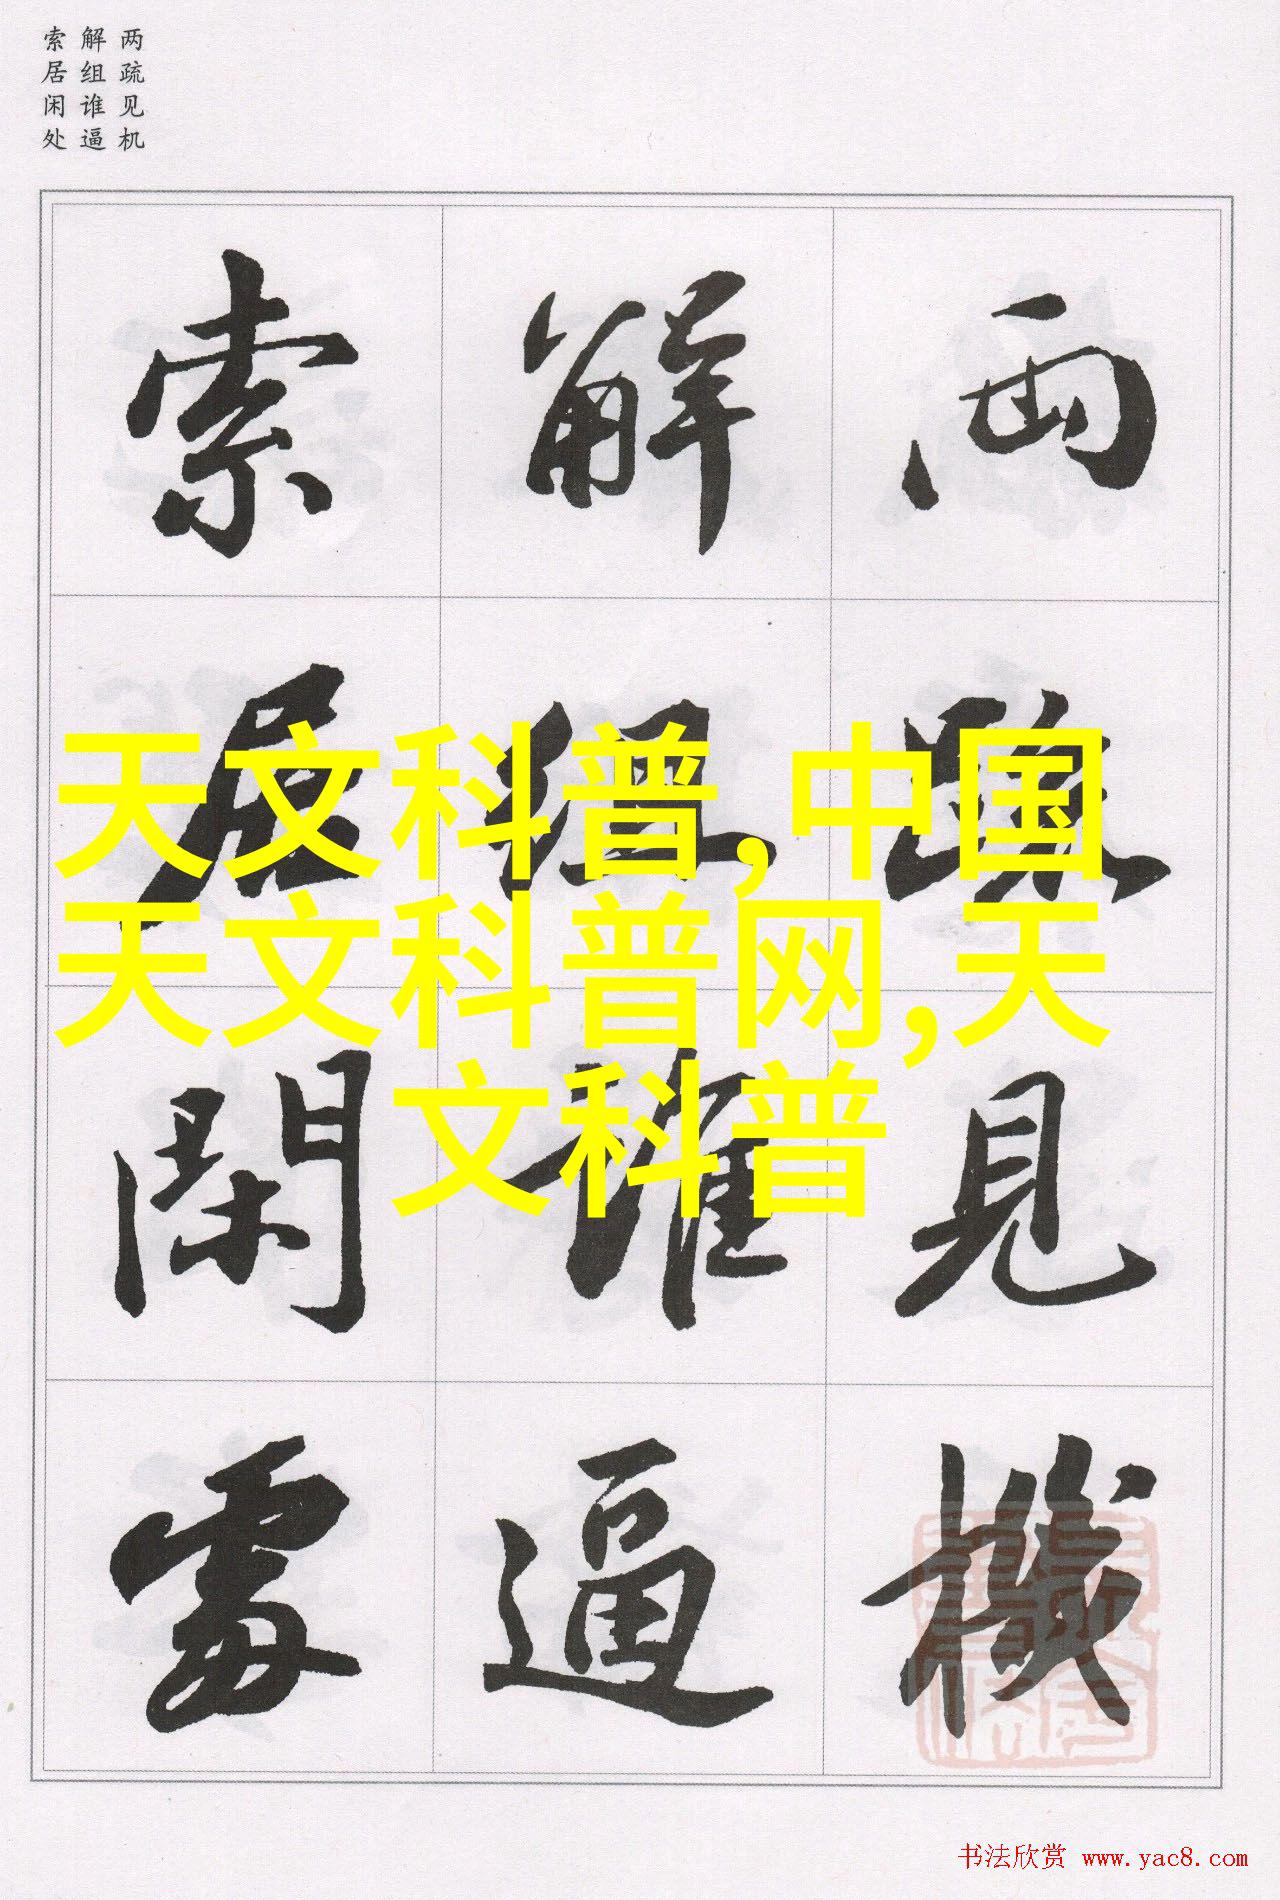 两疏见机
解组谁逼
索居闲处
两疏見機
解组谁逼
索居閑處
天文科普,中国
天文科普网,天
文科普
书法欣赏 www.yac8.com